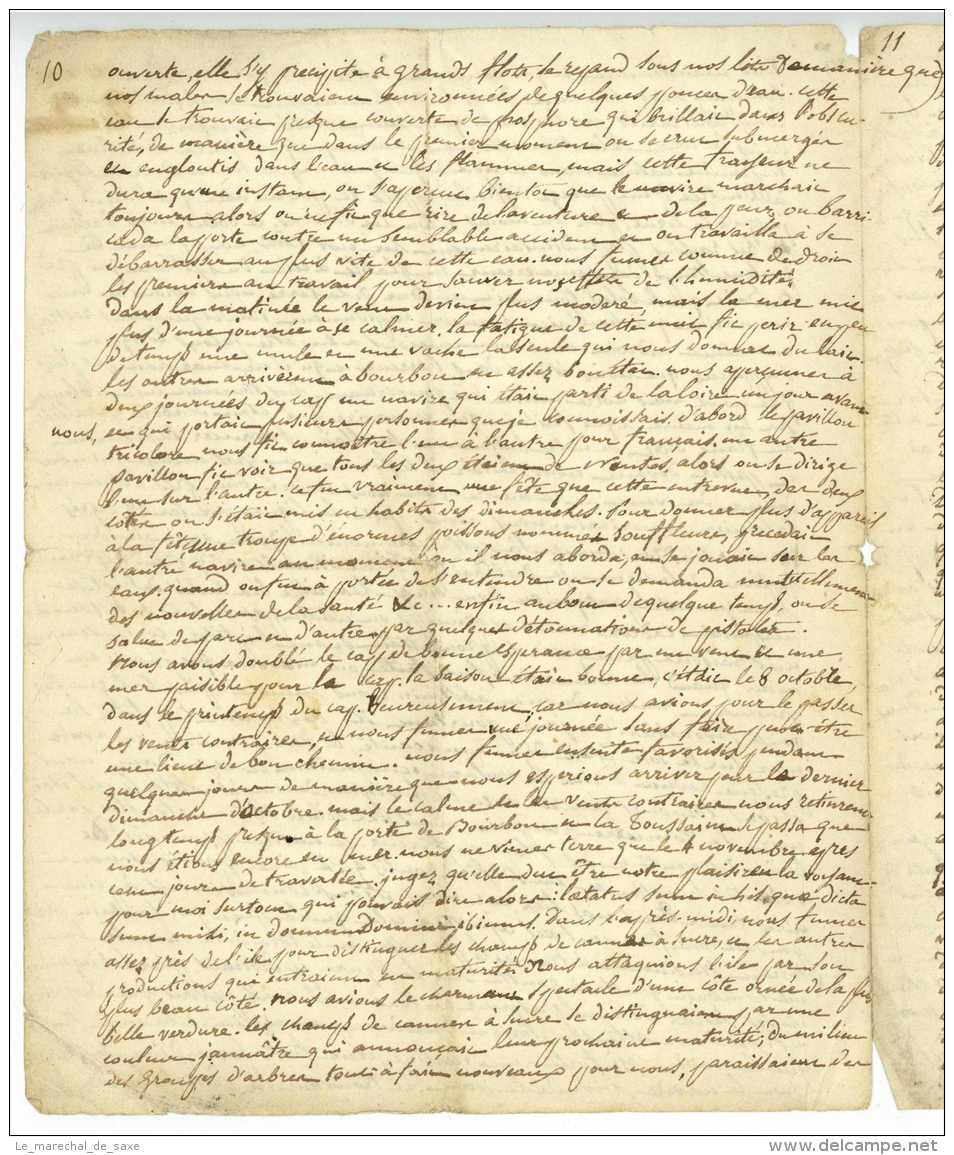 10
11
ouverte, elle s'y precipite à grands flots, se repand sous nos lits de maniere que
nos males se trouvaient environnées de quelques pouces d'eau. cette
eau se trouvait presque couverte de phosphore qui brillait dans l'obscu-
rité, de maniere que dans le premier moment on se crut submergés
et engloutis dans l'eau et les flammes, mais cette frayeur ne
dura qu'une instant, on s'aperçut bientot que le navire marchait
toujours alors on ne fit que rire de l'aventure et de la peur, on barri
cada la porte contre un semblable accident et on travailla à se
débarrasser au plus vite de cette eau. nous fumes comme de droit
les premiers au travail pour sauver nos effets de l'humidité.
dans la matinée le vent devint plus moderé, mais la mer mit
plus d'une journée à se calmer. la fatigue de cette nuit fit perir en peu
de temps une mule et une vache la seule qui nous donnat du lait.
les autres arrivèrent à bourbon en assez bon état. nous aperçumes à
deux journées du cap un navire qui était parti de la loire un jour avant
nous, et qui portait plusieurs personnes que je connoissais. d'abord le pavillon
tricolore nous fit connoitre l'un à l'autre pour français. un autre
pavillon fit voir que tous les deux étaient de Nantes, alors on se dirige
l'un sur l'autre. ce fut vraiment une fête que cette entrevue, des deux
côtés on s'était mis en habits des dimanches. Pour donner plus d'appareil
à la fête une troupe d'énormes poissons nommés souffleurs, precedait
l'autre navire au moment où il nous aborda, en se jouant sur les
eaux. quand on fut à portée de s'entendre on se demanda mutuellement
des nouvelles de la santé &c... enfin au bout de quelque temps, on se
salue de part et d'autre par quelques détonnations de pistolets.
Nous avons doublé le cap de bonne esperance par un vent et une
mer paisible pour le cap. la saison était bonne, c'était le 8 octobre,
dans le printemps du cap. heureusement, car nous avions pour le passer
les vents contraires, et nous fumes une journée sans faire peut-être
une lieue de bon chemin. nous fumes ensuite favorisés pendant
quelques jours de maniere que nous esperions arriver pour le dernier
dimanche d'octobre. mais le calme et les vents contraires nous retinrent
longtemps presque à la porte de Bourbon et la Toussaint se passa que
nous étions encore en mer. nous ne vimes terre que le 4 novembre après
cent jours de traversée. jugez qu'elle dut être notre plaisir en la voyant
pour moi surtout qui pouvais dire alors : lætatus sum in his quæ dicta
sunt mihi, in domum Domini ibimus. Dans l'après-midi, nous fumes
assez près de l'ile pour distinguer les champs de cannes à sucre, et les autres
productions qui entraient en maturité. Nous attaquions l'ile par son
plus beau côté. nous avions le charmant spectacle d'une côte ornée de la plus
belle verdure. les champs de cannes à sucre se distinguaient par une
couleur jaunâtre qui annonçait leur prochaine maturité, du milieu
des groupes d'arbres tout à fait nouveaux pour nous, paraissaient des
Le_marechal_de_saxe
delcampe.net